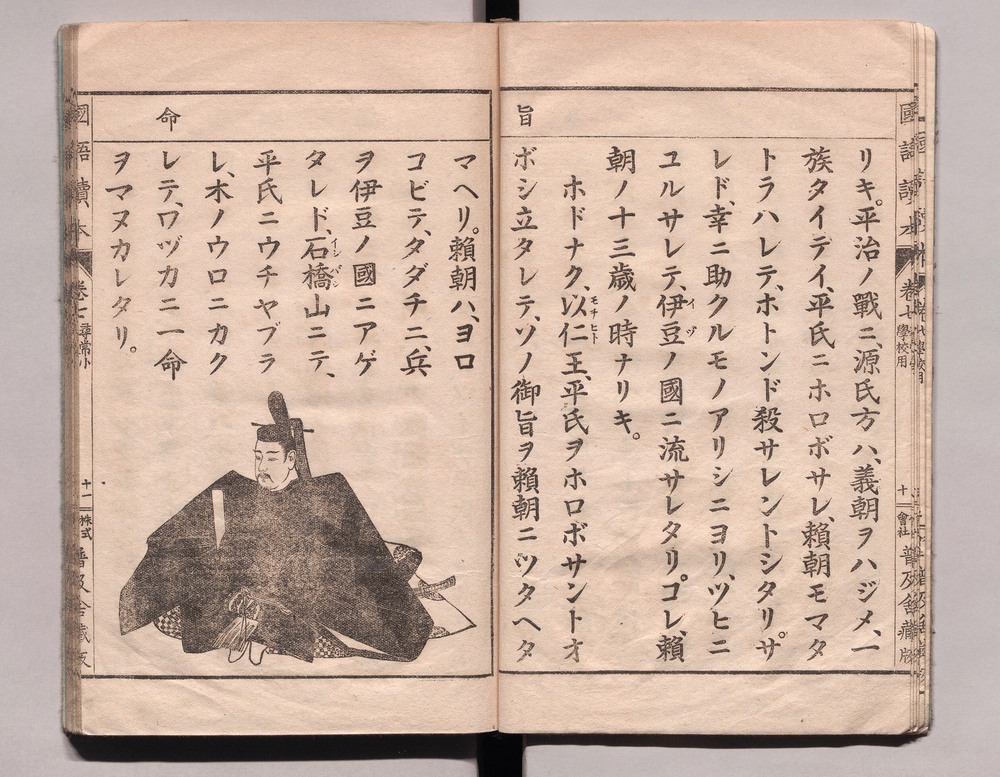 旨
リキ。平治ノ戰ニ、源氏方ハ、義朝ヲハジメ、一
族タイテイ、平氏ニホロボサレ、賴朝モマタ
トラハレテ、ホトンド殺サレントシタリ。サ
レド、幸ニ助クルモノアリシニヨリ、ツヒニ
ユルサレテ、伊豆ノ國ニ流サレタリ。コレ、賴
イヅ
朝ノ十三歲ノ時ナリキ。
ホドナク、以仁王、平氏ヲホロボサントオ
モチヒト
ボシ立タレテ、ソノ御旨ヲ賴朝ニツタヘタ
國語讀本
卷七
學校用
十
會社
普及舍藏版
命
マヘリ。賴朝ハ、ヨロ
コビテ、タダチニ、兵
ヲ伊豆ノ國ニアゲ
タレド、石橋山ニテ、
イシバシ
平氏ニウチヤブラ
レ、木ノウロニカク
レテ、ワヅカニ一命
ヲマヌカレタリ。
國語讀本
卷七
尋常小
十一
株式
普及舍藏版